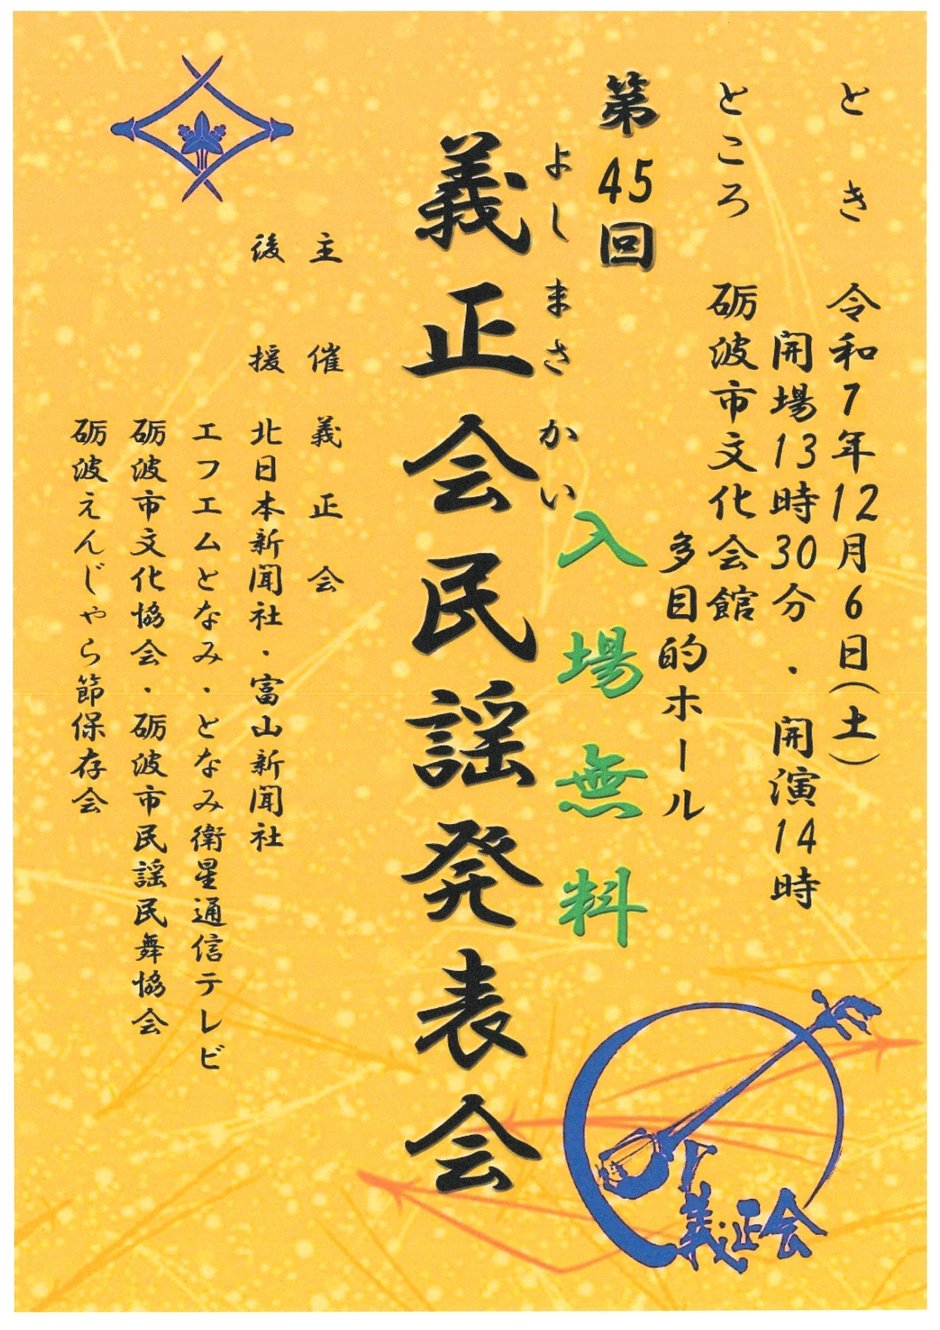 とき　令和7年12月6日(土)
開場13時30分・開演14時
ところ　砺波市文化会館
多目的ホール
第45回
入場無料
よしまさかい
義正会民謡発表会
主催　義正会
後援　北日本新聞社・富山新聞社
エフエムとなみ・となみ衛星通信テレビ
砺波市文化協会・砺波市民謡民舞協会
砺波えんじゃら節保存会
義正会